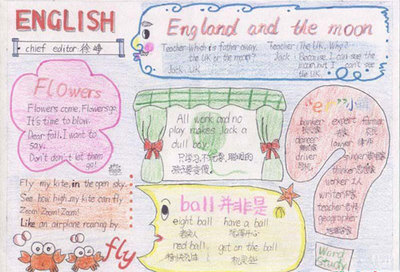 ENGLISH
chief editor
England and the moon
Teacher: Which is father away,
the UK or the moon?
Jack: UK.
Teacher: The UK, Why?
Jack: Because I can see the
moon, but I can't see
the UK.
Flowers
Flowers come. Flowers go.
It's time to blow.
Dear fall. I want to
say.
Don't don't let them
go!
All work and no
play makes Jack a
dull boy.
Fly my kite in the open sky.
See how high my kite can fly
Zoom! Zoom! Zoom!
Like an airplane roaring by
fly
ball 并非是
eight ball
have a ball
red ball
get on the ball
banker
expert
farmer
dancer
driver
singer
thinker
worker 工人
writer
teacher
geographer
Word
Study